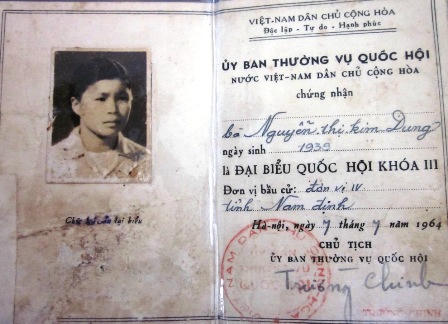 Chữ ký của đại biểu
VIỆT-NAM DÂN CHỦ CỘNG HÒA
Độc lập - Tự do - Hạnh phúc
ỦY BAN THƯỜNG VỤ QUỐC HỘI
NƯỚC VIỆT-NAM DÂN CHỦ CỘNG HÒA
chứng nhận
bà Nguyễn thị Kim Dung
ngày sinh 1939
là ĐẠI BIỂU QUỐC HỘI KHÓA III
Đơn vị bầu cử: đơn vị IV
tỉnh Nam định
Hà-nội, ngày 7 tháng 7 năm 1964
CHỦ TỊCH
ỦY BAN THƯỜNG VỤ QUỐC HỘI
Trường Chinh
TRƯỜNG CHINH